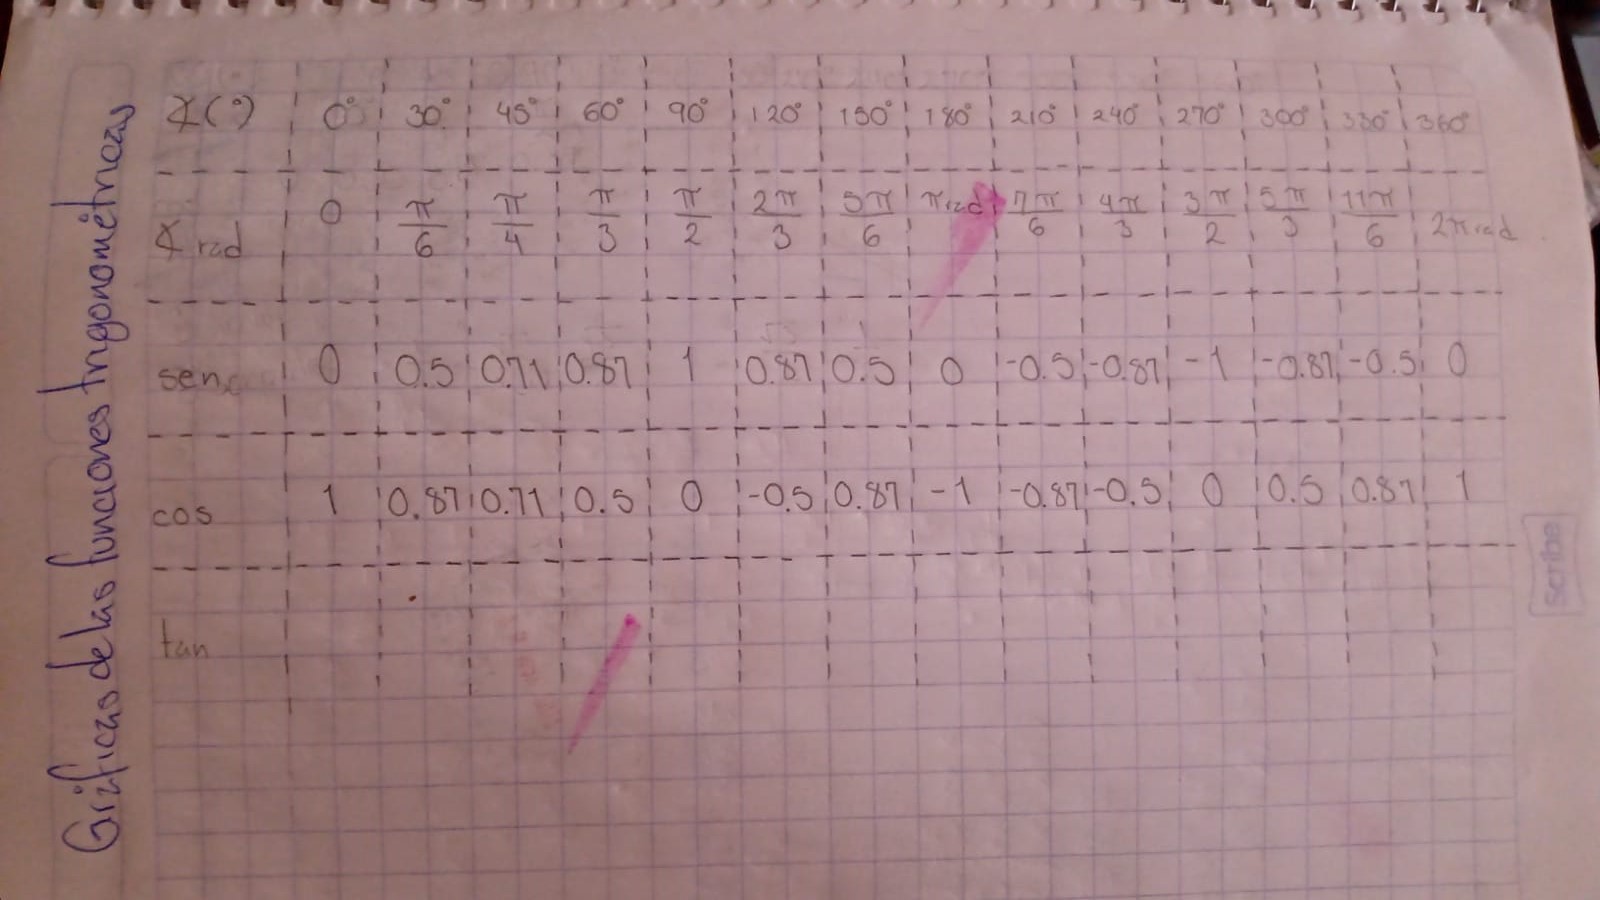 Gráficas de las funciones trigonométricas
∡(°) 0° 30° 45° 60° 90° 120° 150° 180° 210° 240° 270° 300° 330° 360°
∡ rad 0 π/6 π/4 π/3 π/2 2π/3 5π/6 π rad 7π/6 4π/3 3π/2 5π/3 11π/6 2π rad
sen 0 0.5 0.71 0.87 1 0.87 0.5 0 -0.5 -0.87 -1 -0.87 -0.5 0
cos 1 0.87 0.71 0.5 0 -0.5 0.87 -1 -0.87 -0.5 0 0.5 0.87 1
tan
scribe